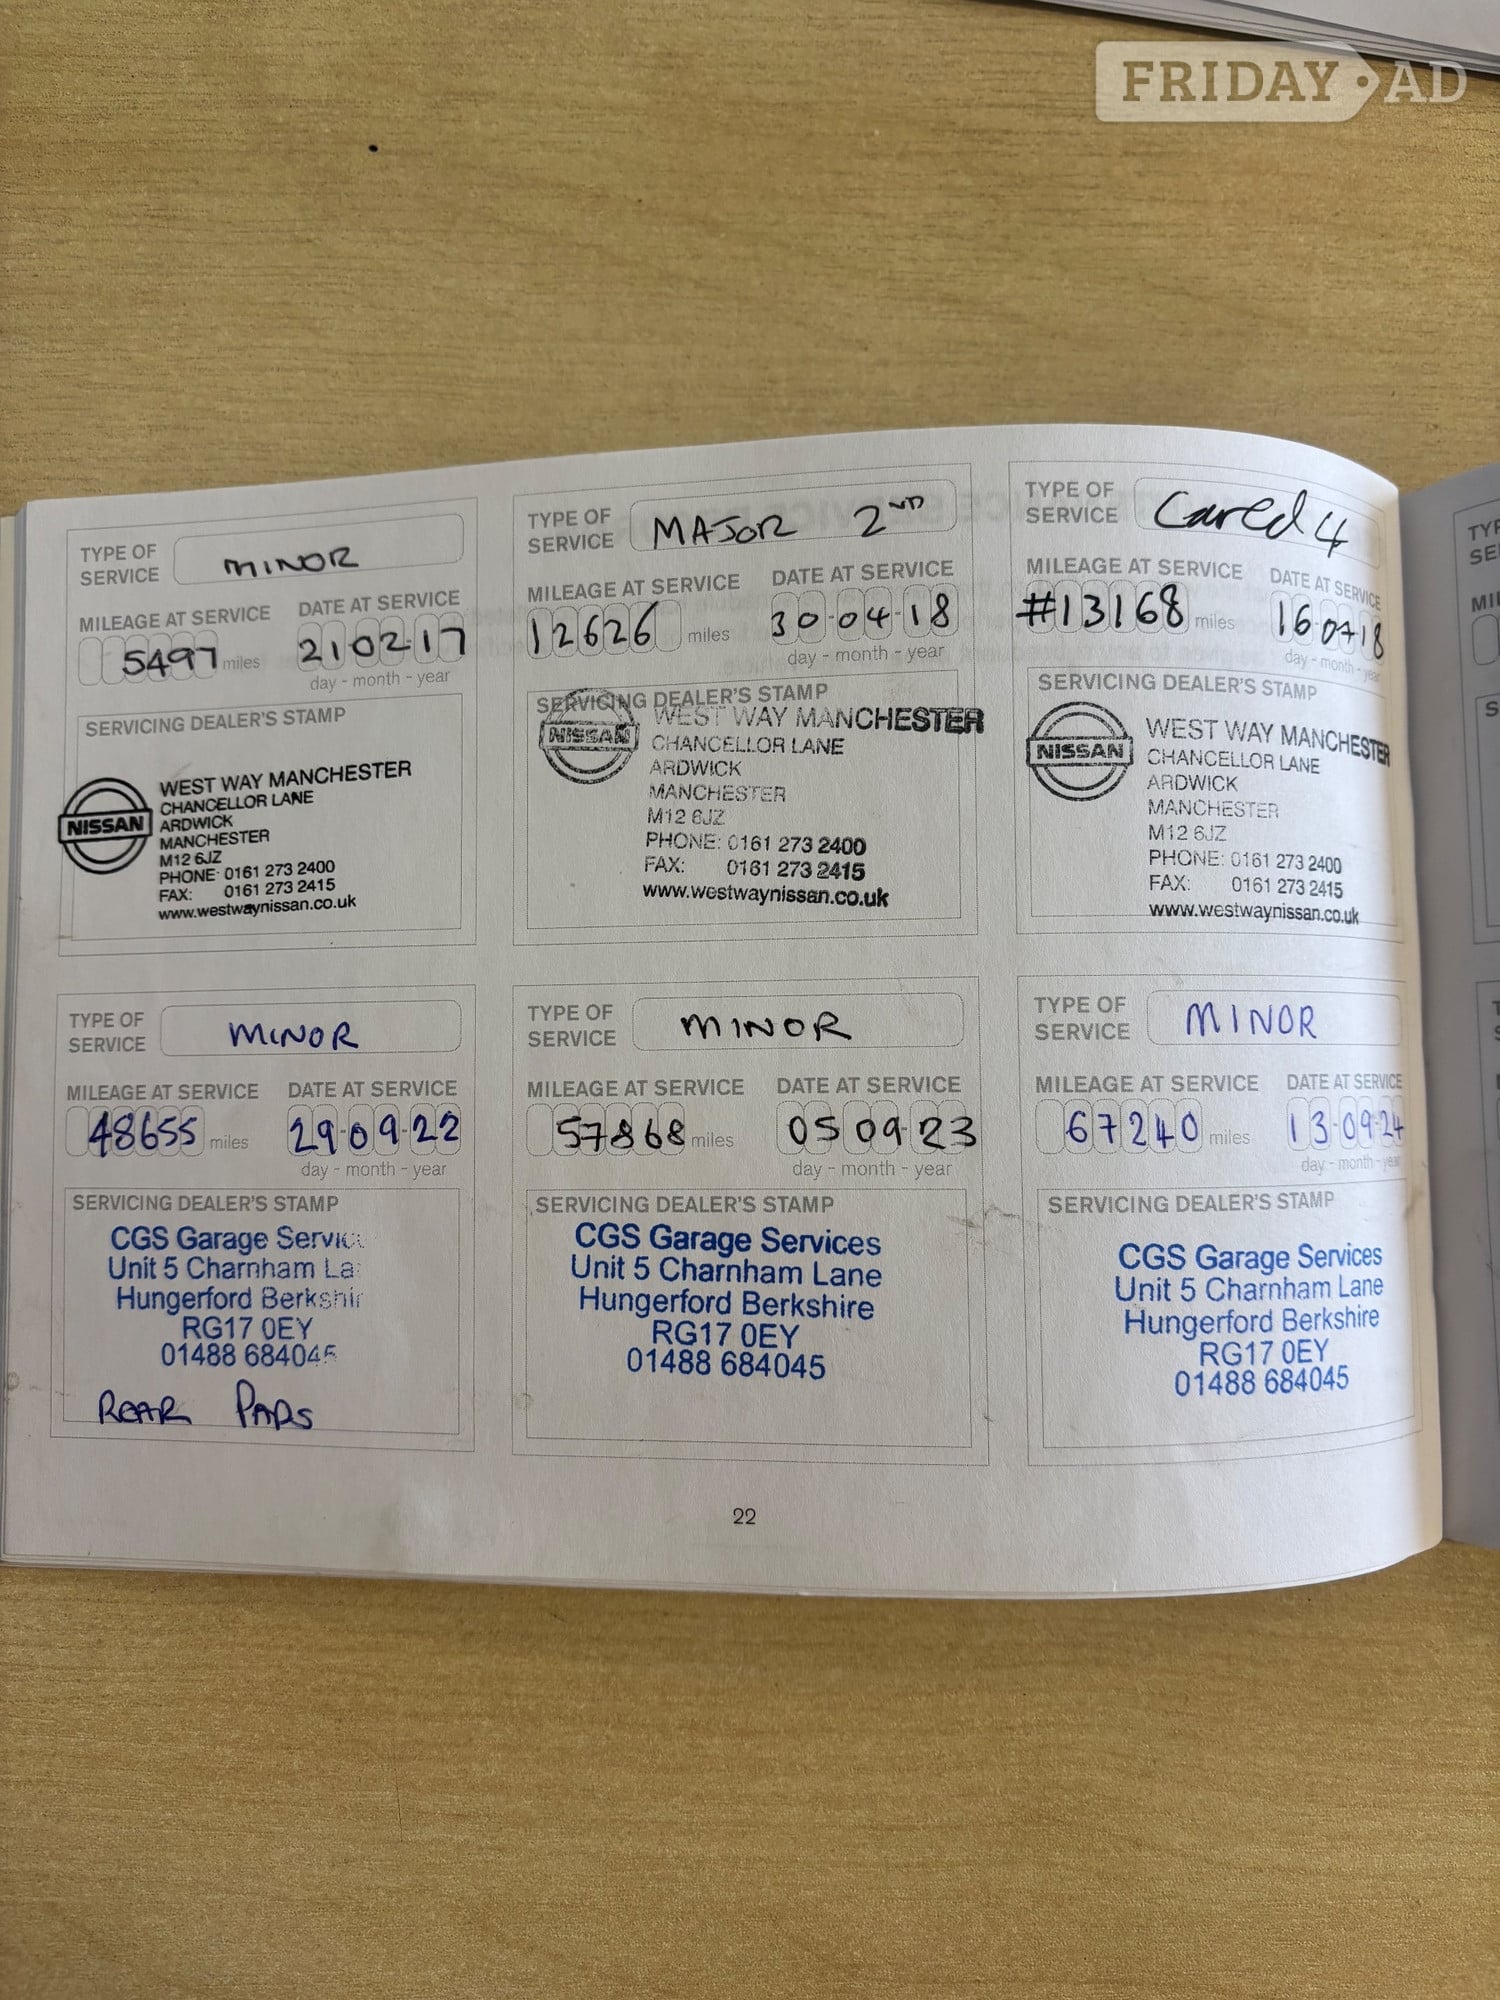 FRIDAY AD
TYPE OF SERVICE MINOR
MILEAGE AT SERVICE DATE AT SERVICE
5497 miles 21 02 17
day - month - year
SERVICING DEALER'S STAMP
NISSAN
WEST WAY MANCHESTER
CHANCELLOR LANE
ARDWICK
MANCHESTER
M12 6JZ
PHONE: 0161 273 2400
FAX: 0161 273 2415
www.westwaynissan.co.uk
TYPE OF SERVICE MAJOR 2ND
MILEAGE AT SERVICE DATE AT SERVICE
12626 miles 30-04-18
day - month - year
SERVICING DEALER'S STAMP
NISSAN
WEST WAY MANCHESTER
CHANCELLOR LANE
ARDWICK
MANCHESTER
M12 6JZ
PHONE: 0161 273 2400
FAX: 0161 273 2415
www.westwaynissan.co.uk
TYPE OF SERVICE Cared 4
MILEAGE AT SERVICE DATE AT SERVICE
#13168 miles 16 07 18
day - month - year
SERVICING DEALER'S STAMP
NISSAN
WEST WAY MANCHESTER
CHANCELLOR LANE
ARDWICK
MANCHESTER
M12 6JZ
PHONE: 0161 273 2400
FAX: 0161 273 2415
www.westwaynissan.co.uk
TYPE OF SERVICE MINOR
MILEAGE AT SERVICE DATE AT SERVICE
48655 miles 29-09-22
day - month - year
SERVICING DEALER'S STAMP
CGS Garage Servic
Unit 5 Charnham La
Hungerford Berkshir
RG17 0EY
01488 684045
REAR PADS
TYPE OF SERVICE MINOR
MILEAGE AT SERVICE DATE AT SERVICE
57868 miles 05 09 23
day - month - year
SERVICING DEALER'S STAMP
CGS Garage Services
Unit 5 Charnham Lane
Hungerford Berkshire
RG17 0EY
01488 684045
TYPE OF SERVICE MINOR
MILEAGE AT SERVICE DATE AT SERVICE
67240 miles 13-09-24
day - month - year
SERVICING DEALER'S STAMP
CGS Garage Services
Unit 5 Charnham Lane
Hungerford Berkshire
RG17 0EY
01488 684045
22